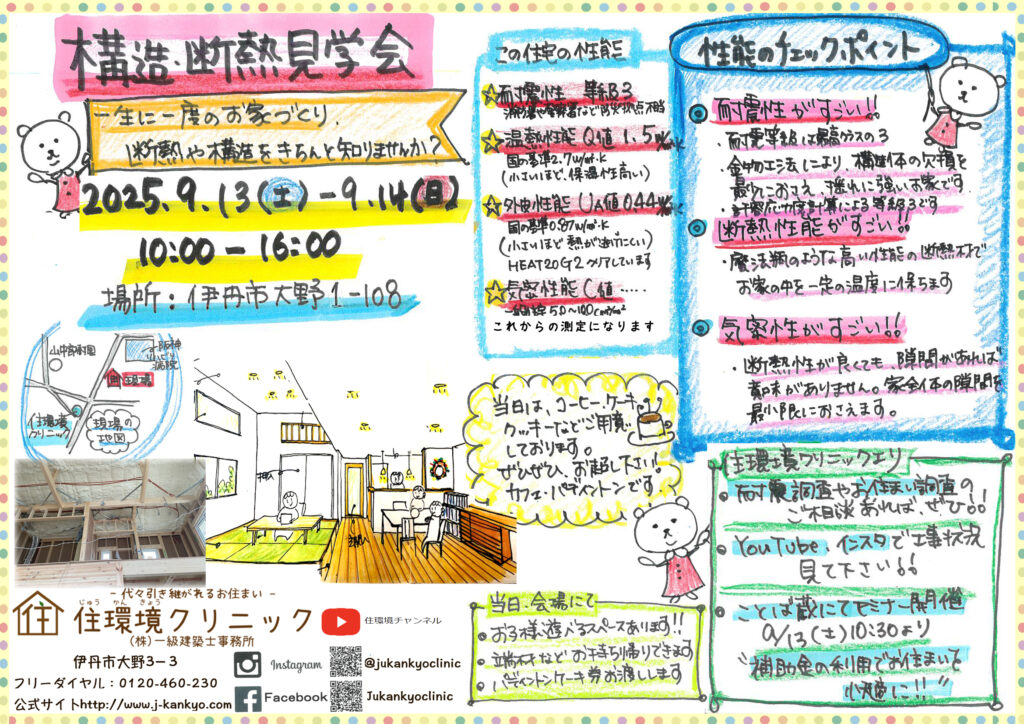 構造・断熱見学会
一生に一度のお家づくり、
断熱や構造をきちんと知りませんか?
2025.9.13(土)-9.14(日)
10:00-16:00
場所:伊丹市大野1-108
山中部材園
阪神
リハビリ
病院
現場
住環境
クリニック
現場の
地図
この住宅の性能
耐震性 等級3
消防署や警察署など防災拠点相当
温熱性能 Q値 1.5w/㎡・K
国の基準2.7w/㎡・K
(小さいほど、保温性高い)
外皮性能 UA値 0.44w/㎡・K
国の基準0.87w/㎡・K
(小さいほど熱が逃げにくい)
HEAT20G2クリアしています
気密性能 C値 ‥‥‥
一般的住宅 5.0〜10.0c㎡/㎡
これからの測定になります
性能のチェックポイント
耐震性がすごい!!
・耐震等級は最高クラスの3
・金物工法により、構造体の欠損を
最少におさえ、揺れに強いお家です
・許容応力度計算による等級3です
断熱性能がすごい!!
・魔法瓶のような高い性能の断熱材で
お家の中を一定の温度に保ちます
気密性がすごい!!
・断熱性が良くても、隙間があれば
意味がありません。家全体の隙間を
最小限におさえます。
当日は、コーヒー、ケーキ、
クッキーなどご用意
しております。
ぜひぜひ、お越し下さい!
カフェ・パディントンです。
住環境クリニックより
・耐震調査やお住まい調査の
ご相談あれば、ぜひ!!
・YouTube、インスタで工事状況
見て下さい!!
・ことば蔵にてセミナー開催
9/13(土)10:30より
"補助金の利用でお住まいを
快適に!!"
当日、会場にて
・お子様遊べるスペースあります!!
・端材などお持ち帰りできます
・パディントンケーキ券お渡しします
- 代々引き継がれるお住まい -
じゅう かん きょう
住 住環境クリニック
(株)一級建築士事務所
伊丹市大野3-3
フリーダイヤル:0120-460-230
公式サイトhttp://www.j-kankyo.com
住環境チャンネル
Instagram
@jukankyoclinic
Facebook
Jukankyoclinic